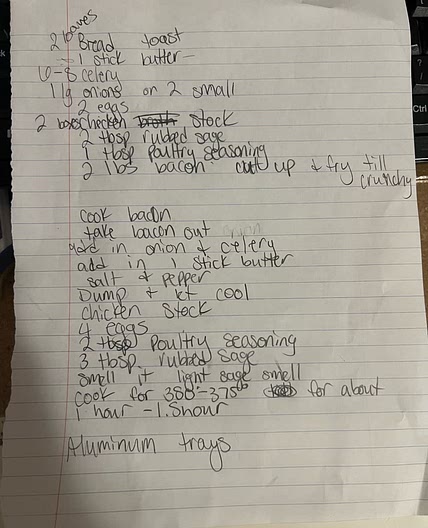 2 loaves
Bread toast
- 1 stick butter -
6-8 celery
1 lg onions or 2 small
2 eggs
2 boxes chicken broth stock
2 tbsp rubbed sage
1 tbsp poultry seasoning
2 lbs bacon cut up & fry till
crunchy
cook bacon
take bacon out
add in onion & celery
add in 1 stick butter
salt & pepper
Dump & let cool
chicken stock
4 eggs
2 tbsp poultry seasoning
3 tbsp rubbed sage
smell it light sage smell
cook for 350°-375° for about
1 hour - 1.5hour
Aluminum trays
Ctrl